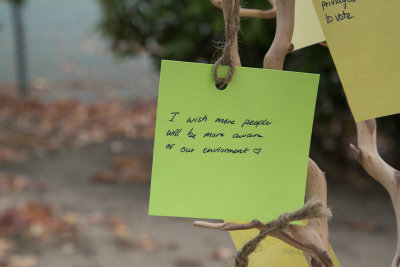 privileges
to vote.
I wish more people
will be more aware
of our enviorment ♡